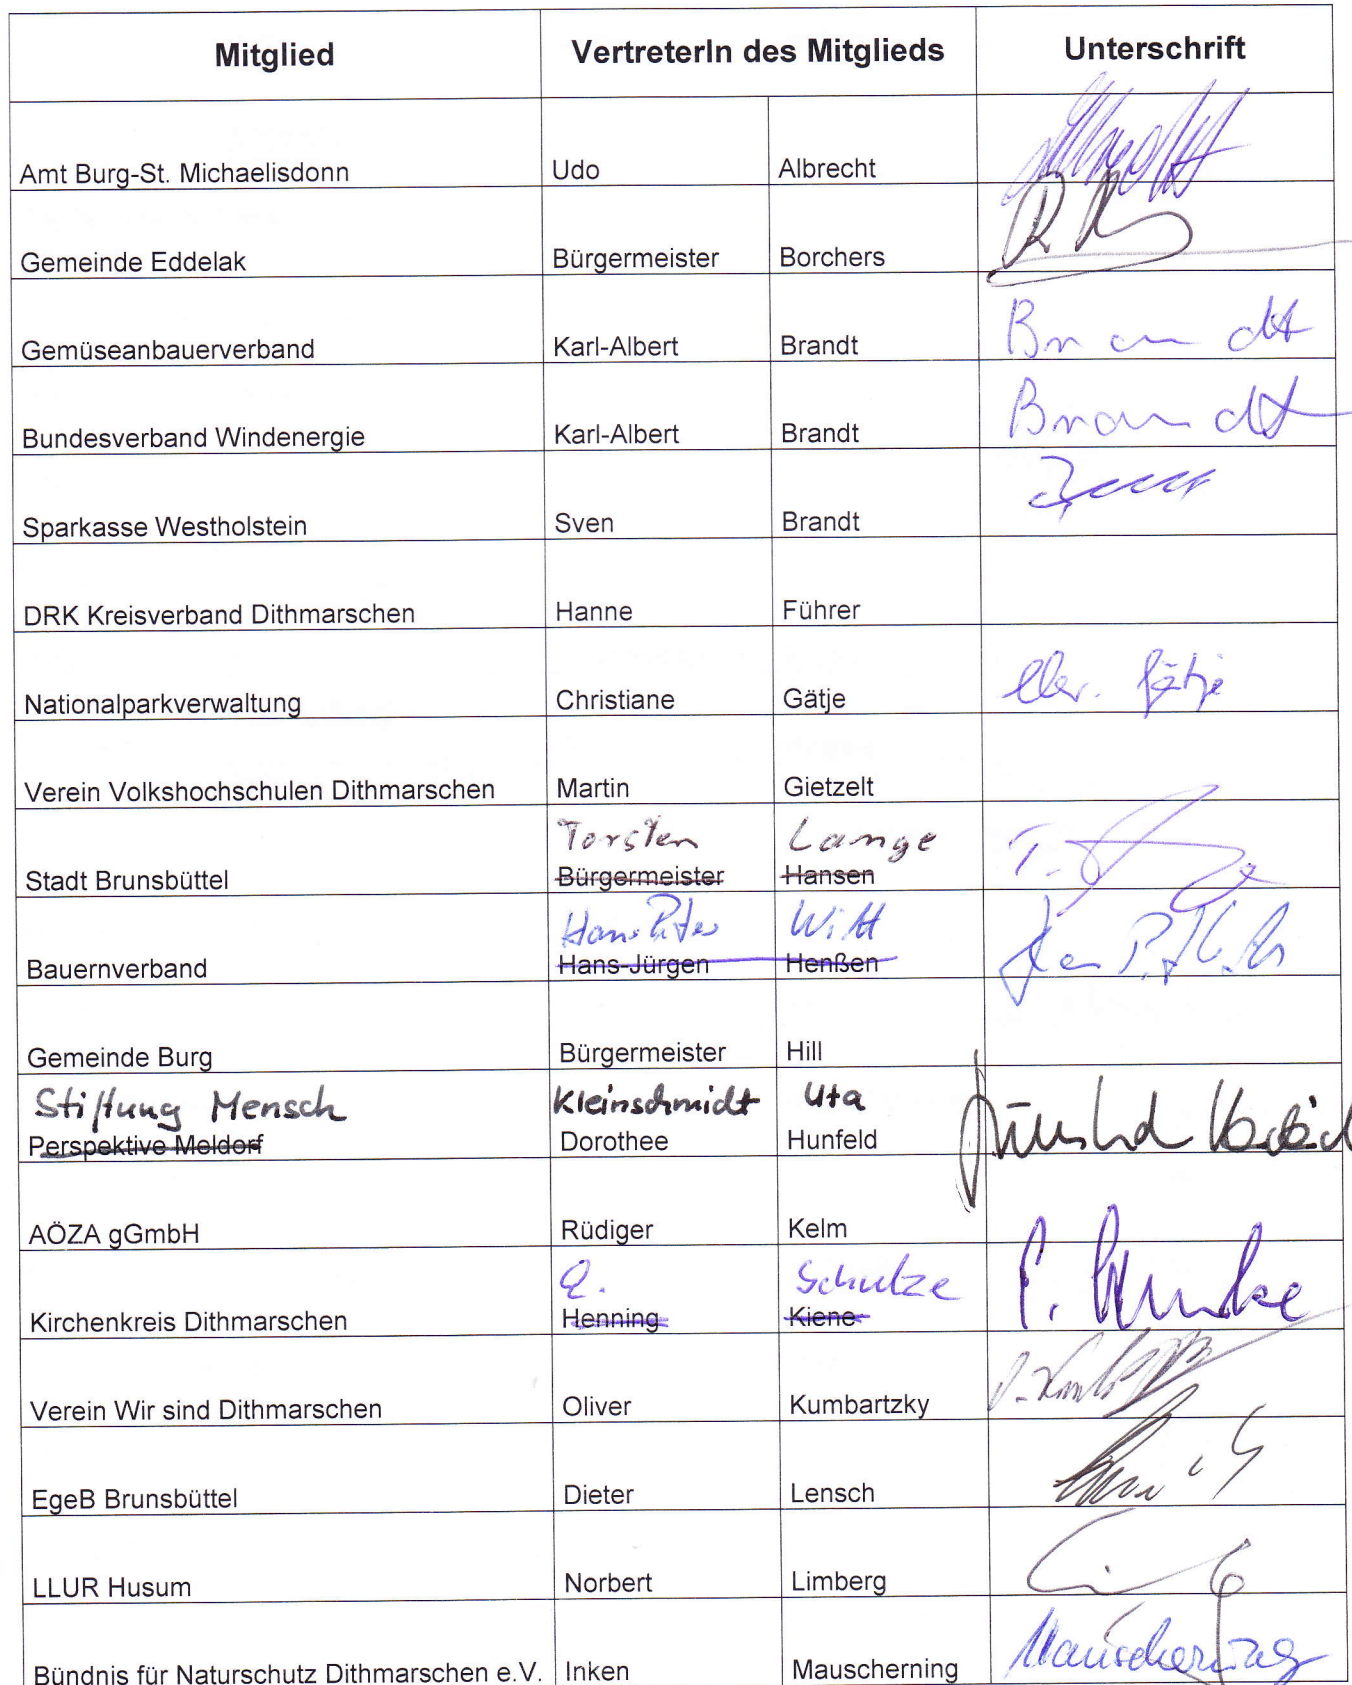 Mitglied VertreterIn des Mitglieds Unterschrift
Amt Burg-St. Michaelisdonn Udo Albrecht
Gemeinde Eddelak Bürgermeister Borchers
Gemüseanbauerverband Karl-Albert Brandt Brandt
Bundesverband Windenergie Karl-Albert Brandt Brandt
Sparkasse Westholstein Sven Brandt
DRK Kreisverband Dithmarschen Hanne Führer
Nationalparkverwaltung Christiane Gätje Chr. Gätje
Verein Volkshochschulen Dithmarschen Martin Gietzelt
Torsten Lange
Stadt Brunsbüttel Bürgermeister Hansen
Hans Peter Witt
Bauernverband Hans-Jürgen Henßen
Gemeinde Burg Bürgermeister Hill
Stiftung Mensch Kleinschmidt Uta
Perspektive Meldorf Dorothee Hunfeld
AÖZA gGmbH Rüdiger Kelm
Schulze
Kirchenkreis Dithmarschen Henning Kiene
Verein Wir sind Dithmarschen Oliver Kumbartzky
EgeB Brunsbüttel Dieter Lensch
LLUR Husum Norbert Limberg
Bündnis für Naturschutz Dithmarschen e.V. Inken Mauscherning Mauscherning